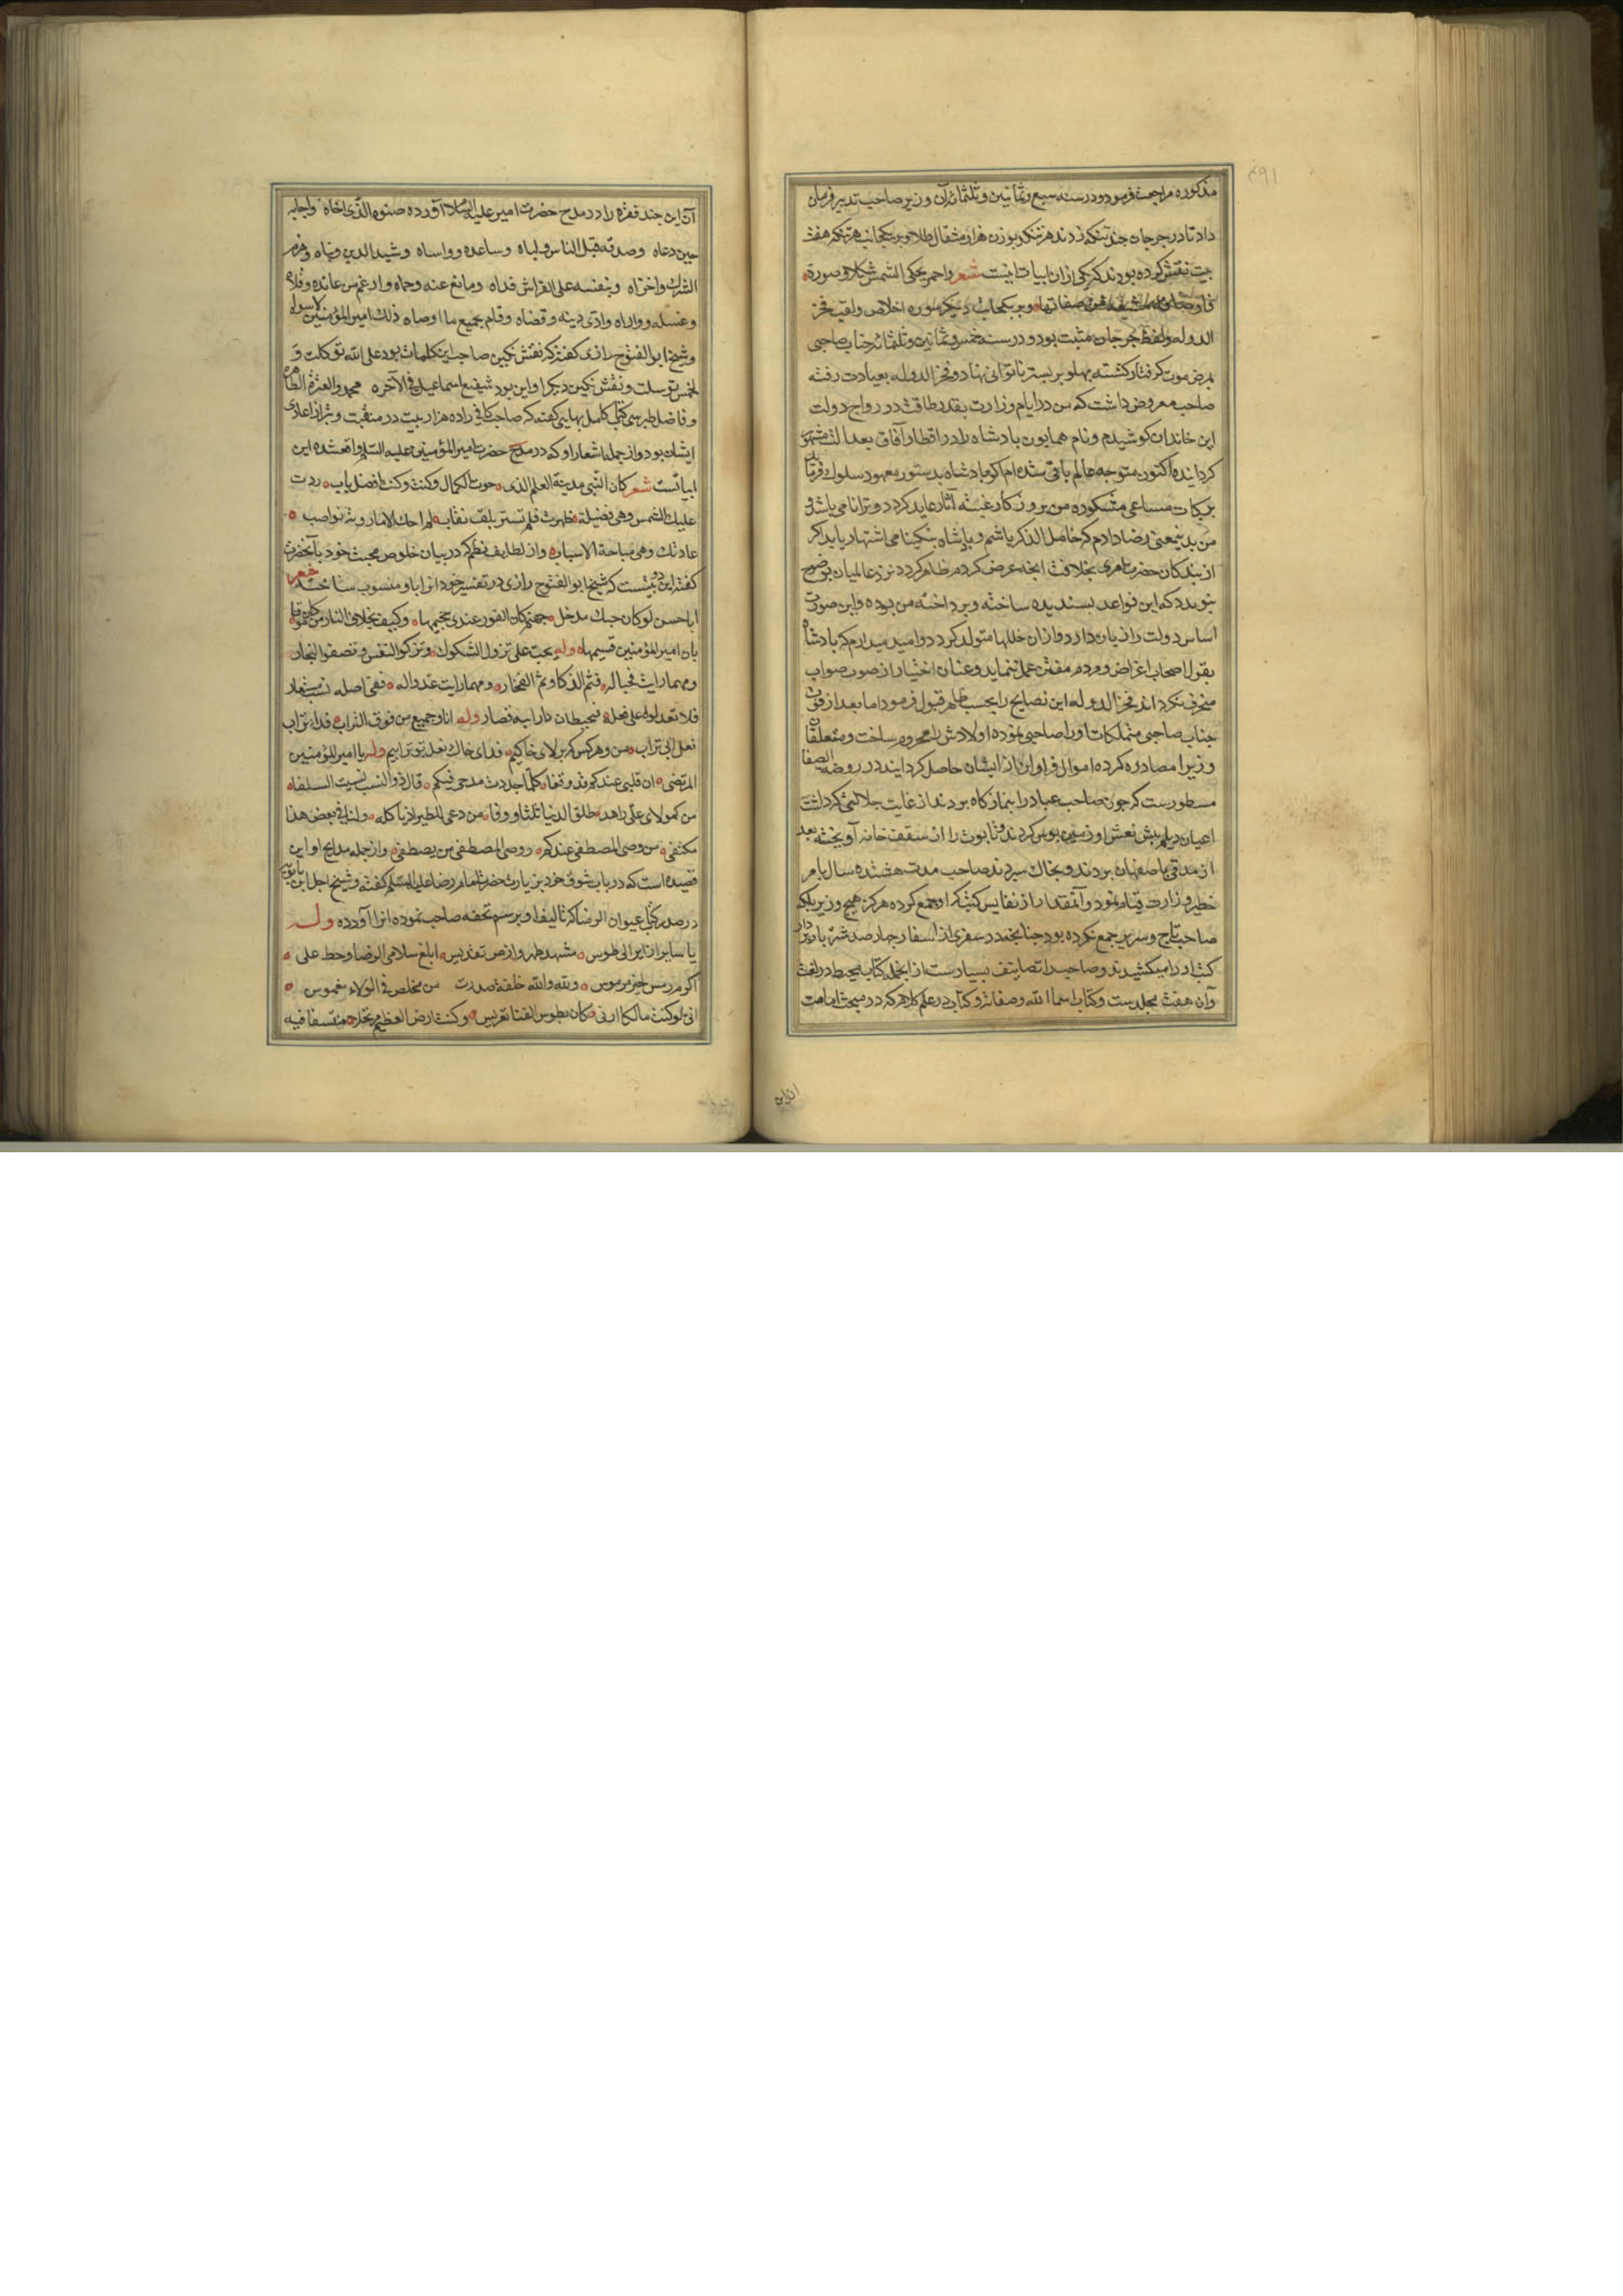 ۶۹۱
مذکوره مراجعت فرمود و در سنه سبع و ثمانین و ثلثمائه آن وزیر صاحب تدبیر فرمان
داد تا در جرجان چند تنکه زدند هر تنکه بوزن هزار مثقال طلا و بر یکجانب هر تنکه هفت
بیت نقش کرده بودند که یکی از ان ابیات اینست شعر واحمر یحکی الشمس شکلا و صورة
فاوصافه مشتقة من صفاتها و بر یکجانب دیگر سوره اخلاص و لقب فخر
الدوله و لفظ جرجان مثبت بود و در سنه خمس و ثمانین و ثلثمائه جناب صاحبی
بمرض موت کرفتار کشته پهلو بر بستر ناتوانی نهاد و فخر الدوله بعیادت رفته
صاحب معروض داشت که من در ایام وزارت بقدر طاقت در رواج دولت
این خاندان کوشیدم و نام همایون پادشاه را در اقطار آفاق بعدالت مشهور
کردانیده اکنون متوجه عالم باقی شده ام اکر پادشاه بدستور معهود سلوک فرماید
برکات مساعی مشکوره من بروزکار خجسته آثار عاید کردد و ترا نامی باشد و
من بدینمعنی رضا دادم که خامل الذکر باشم و پادشاه بنیکنامی اشتهار یابد اکر
از بندکان حضرت امری بخلاف انچه عرض کردم ظاهر کردد نزد عالمیان بوضوح
پیوندد که این قواعد پسندیده ساخته و پرداخته من بوده و این صورت
اساس دولت را زیان دارد و ازان خللها متولد کردد و امید میدارم که پادشاه
بقول اصحاب اغراض و مردم مفتن عمل ننماید و عنان اختیار از صوب صواب
منحرف نکرداند فخر الدوله این نصایح را بحسب ظاهر قبول فرمود اما بعد از فوت
جناب صاحبی متملکات او را صاحبی نموده اولادش را محروم ساخت و متعلقان
وزیر را مصادره کرده اموال فراوان از ایشان حاصل کردانید در روضة الصفا
مسطورست که چون صاحب عباد را بنمازکاه بردند از غایت جلالتی که داشت
اعیان دیلم پیش نعش او زمین بوس کردند و تابوت را از سقف خانه آویخته بعد
از مدتی باصفهان بردند و بخاک سپردند صاحب مدت هشتده سال بامر
خطیر وزارت قیام نمود و آنمقدار از نفایس کتب که او جمع کرده هرکز هیچ وزیر بلکه
صاحب تاج و سریر جمع نکرده بود چنانچه در سفری از اسفار چهار صد شتر باربردار
کتب او را میکشیدند و صاحب را تصانیف بسیارست از انجمله کتاب محیط در لغت
و آن هفت مجلدست و کتاب اسماء الله و صفاته و کتابی در علم کلام که در مبحث امامت
ان این
آن این چند فقره را در مدح حضرت امیر علیه السلام آورده صنوه الذی اخاه واجابه
حین دعاه وصدقه قبل الناس ولباه وساعده وواساه وشید الدین وبناه وهزم
الشرک واخزاه وبنفسه علی الفراش فداه ومانع عنه وحماه وارغم من عانده وقلاه
وغسله وواراه وادی دینه وقضاه وقام بجمیع ما اوصاه ذلک امیر المؤمنین لا سواه
و شیخ ابو الفتوح رازی کفته که نقش نکین صاحب این کلمات بود علی الله توکلت و
لخمس توسلت و نقش نکین دیکر او این بود شفیع اسماعیل فی الآخره محمد والعترة الطاهره
و فاضل طبرسی در کتاب کامل بهایی کفته که صاحب کافی را ده هزار بیت در منقبت و تبرا از اعادی
ایشان بود و از جمله اشعار او که در مدح حضرت امیر المؤمنین علیه السلام واقع شده این
ابیاتست شعر کان النبی مدینة العلم الذی حوت الکمال وکنت افضل باب ردت
علیک الشمس وهی فضیلة ظهرت فلم تستر بلف نقاب لم احک الا ما روته نواصب
عادتک وهی مباحة الاسباب و از لطایف نظم که در بیان خلوص محبت خود بآنحضرت
کفته این دو بیتست که شیخ ابو الفتوح رازی در تفسیر خود انرا باو منسوب ساخته شعر
ابا حسن لو کان حبک مدخلی جهنم کان الفوز عندی جحیمها وکیف یخاف النار من کان موقنا
بان امیر المؤمنین قسیمها وله بحب علی تزول الشکوک وتزکو النفوس وتصفو النجار
ومهما رایت محبا له فثم الذکاء وثم الفخار ومهما رایت عدوا له ففی اصله نسب مستعار
فلا تعذلوه علی فعله فحیطان دار ابیه قصار وله انا وجمیع من فوق التراب فداء تراب
نعل ابی تراب من و هر کس که بر بالای خاکیم فدای خاک نعل بوترابیم وله یا امیر المؤمنین
المرتضی ان قلبی عندکم قد وقفا کلما جددت مدحی فیکم قال ذو النصب نسیت السلفا
من کمولای علی زاهد طلق الدنیا ثلثا ووفا من دعی للطیر ان یاکله ولنا فی بعض هذا
مکتفی من وصی المصطفی عندکم ووصی المصطفی من یصطفی و از جمله مدایح او این
قصیده است که در باب شوق خود بزیارت حضرت امام رضا علیه السلم کفته و شیخ اجل ابن بابویه
در صدر کتاب عیون الرضا که تالیف او برسم تحفه صاحب نموده انرا آورده وله
یا سایرا زایرا الی طوس مشهد طهر وارض تقدیس ابلغ سلامی الرضا وحط علی
اکرم رمس لخیر مرموس والله والله حلفة صدرت من مخلص فی الولاء مغموس
انی لو کنت مالکا اربی کان بطوس الفناء تعریسی وکنت ارض العظیم مرتحلا منتسفا فیه